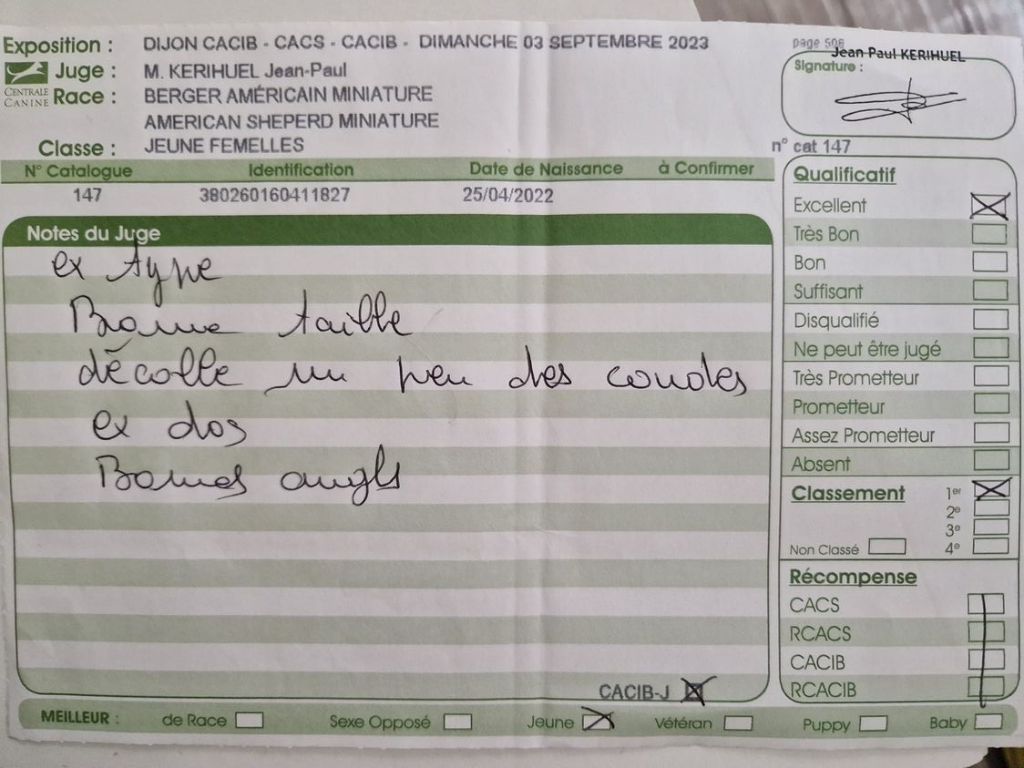 Exposition : DIJON CACIB - CACS - CACIB - DIMANCHE 03 SEPTEMBRE 2023
page 506
Jean Paul KERIHUEL
Juge : M. KERIHUEL Jean-Paul
Signature :
CENTRALE CANINE
Race : BERGER AMÉRICAIN MINIATURE
AMERICAN SHEPERD MINIATURE
Classe : JEUNE FEMELLES
n° cat 147
N° Catalogue Identification Date de Naissance à Confirmer
147 380260160411827 25/04/2022
Notes du Juge
ex type
Bonne taille
décolle un peu des coudes
ex dos
Bonnes angls
CACIB-J
Qualificatif
Excellent
Très Bon
Bon
Suffisant
Disqualifié
Ne peut être jugé
Très Prometteur
Prometteur
Assez Prometteur
Absent
Classement 1er
2e
3e
Non Classé 4e
Récompense
CACS
RCACS
CACIB
RCACIB
MEILLEUR : de Race Sexe Opposé Jeune Vétéran Puppy Baby